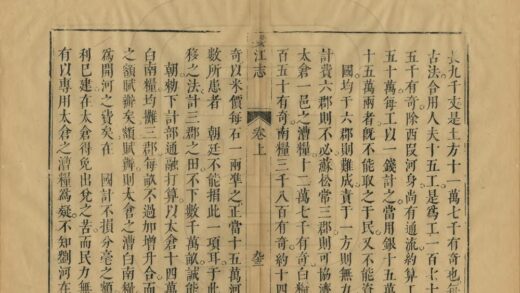 九千支是土方十一萬七千有奇也每
古法合用人夫十五工是爲工一百七十
五千有奇除西叚河身尚有通流約算工
五十萬每工以一錢計之當用銀十五萬
十五萬兩者旣不能取之于民又不能資
國均于六郡則難成責于一方則無
計費六郡則不必蘇松常三郡則可協濟
太倉一邑之漕糧十二萬七千有奇白
百五十有奇南糧三千八百有奇約十四
江志 卷上
奇以米價每石一兩準之正當十五萬河
數所患者 朝廷不能捐此一項耳于此
移之法計三郡之田不下數千萬畝誠能
朝勑下計部通融打算以太倉十四萬
白南糧均攤三郡每畝不過加增升合而
之額賦辦矣額賦辦則太倉之漕白南糧
為開河之費矣在 國計不損分毫之
利已建在太倉得免出兌之苦而民力無
有以專用太倉之漕糧為疑不知劉河在